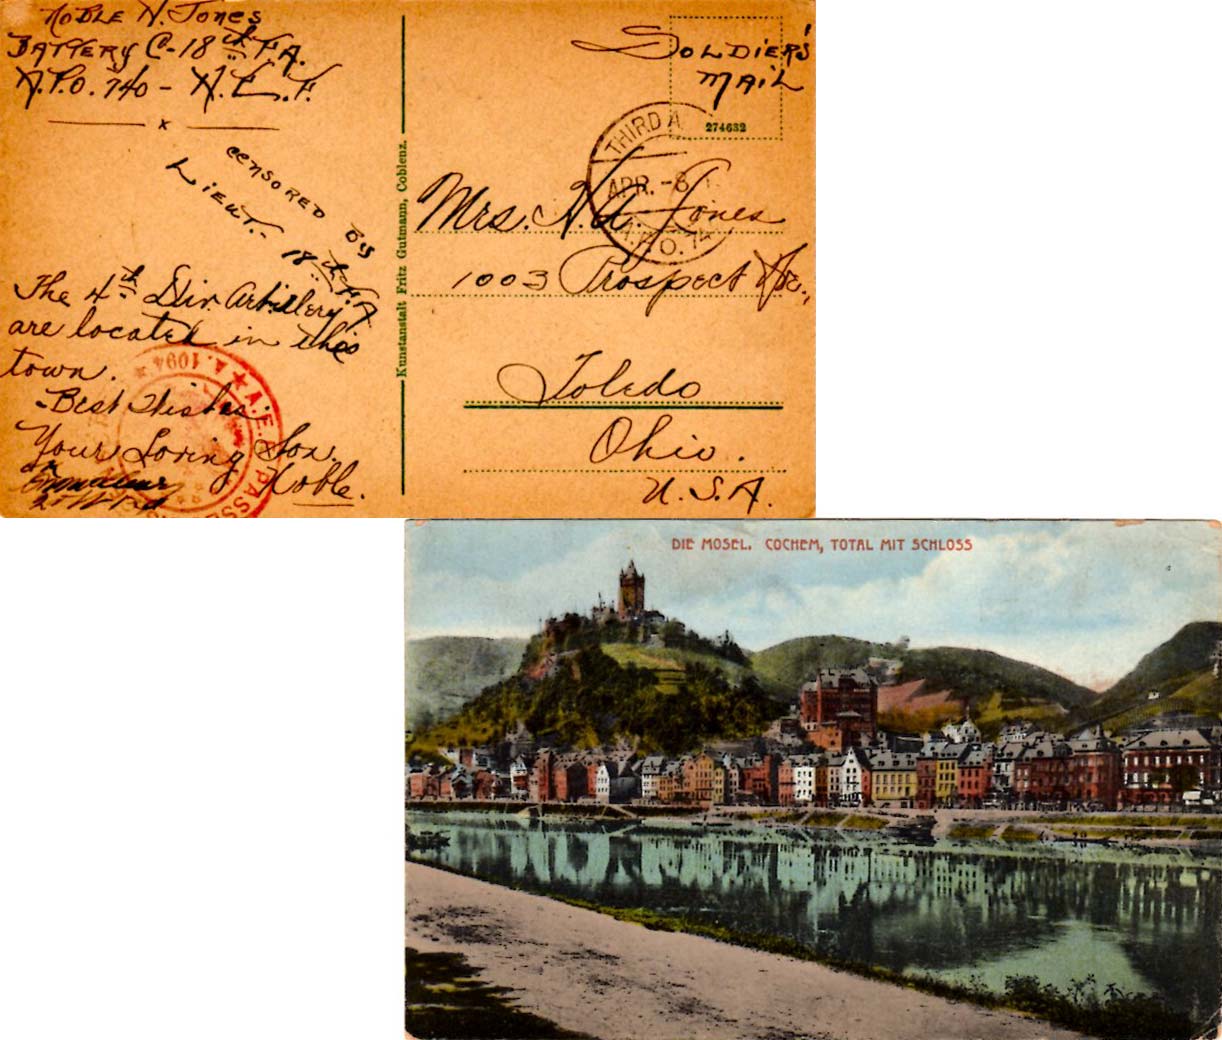 Noble N. Jones
Battery C-18th F.A.
A.P.O. 740 - A.E.F.
x
Censored by
Lieut. - 18th F.A.
The 4th Div. Artillery
are located in this
town.
-Best Wishes-
Your Loving Son.
Noble.
★ A. 1094 ★ A.E.F. PASSED
Kunstanstalt Fritz Gutmann, Coblenz.
Soldier's
Mail
274632
THIRD A
APR. -8
Mrs. H.A. Jones
1003 Prospect Ave.,
Toledo
Ohio.
U.S.A.
DIE MOSEL. COCHEM, TOTAL MIT SCHLOSS